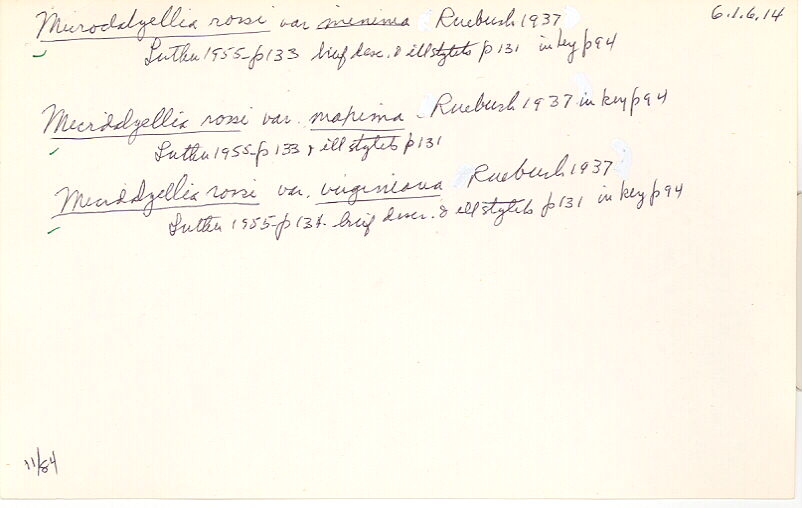 6.1.6.14
Microdalyellia rossi var minima Ruebush 1937
Luther 1955-p133 brief desc. & ill stylets p131 in key p94
Microdalyellia rossi var. maxima - Ruebush 1937 in key p94
Luther 1955-p133 & ill stylets p131
Microdalyellia rossi var. virginiana Ruebush 1937
Luther 1955-p134- brief descr. & ill stylets p131 in key p94
11/84